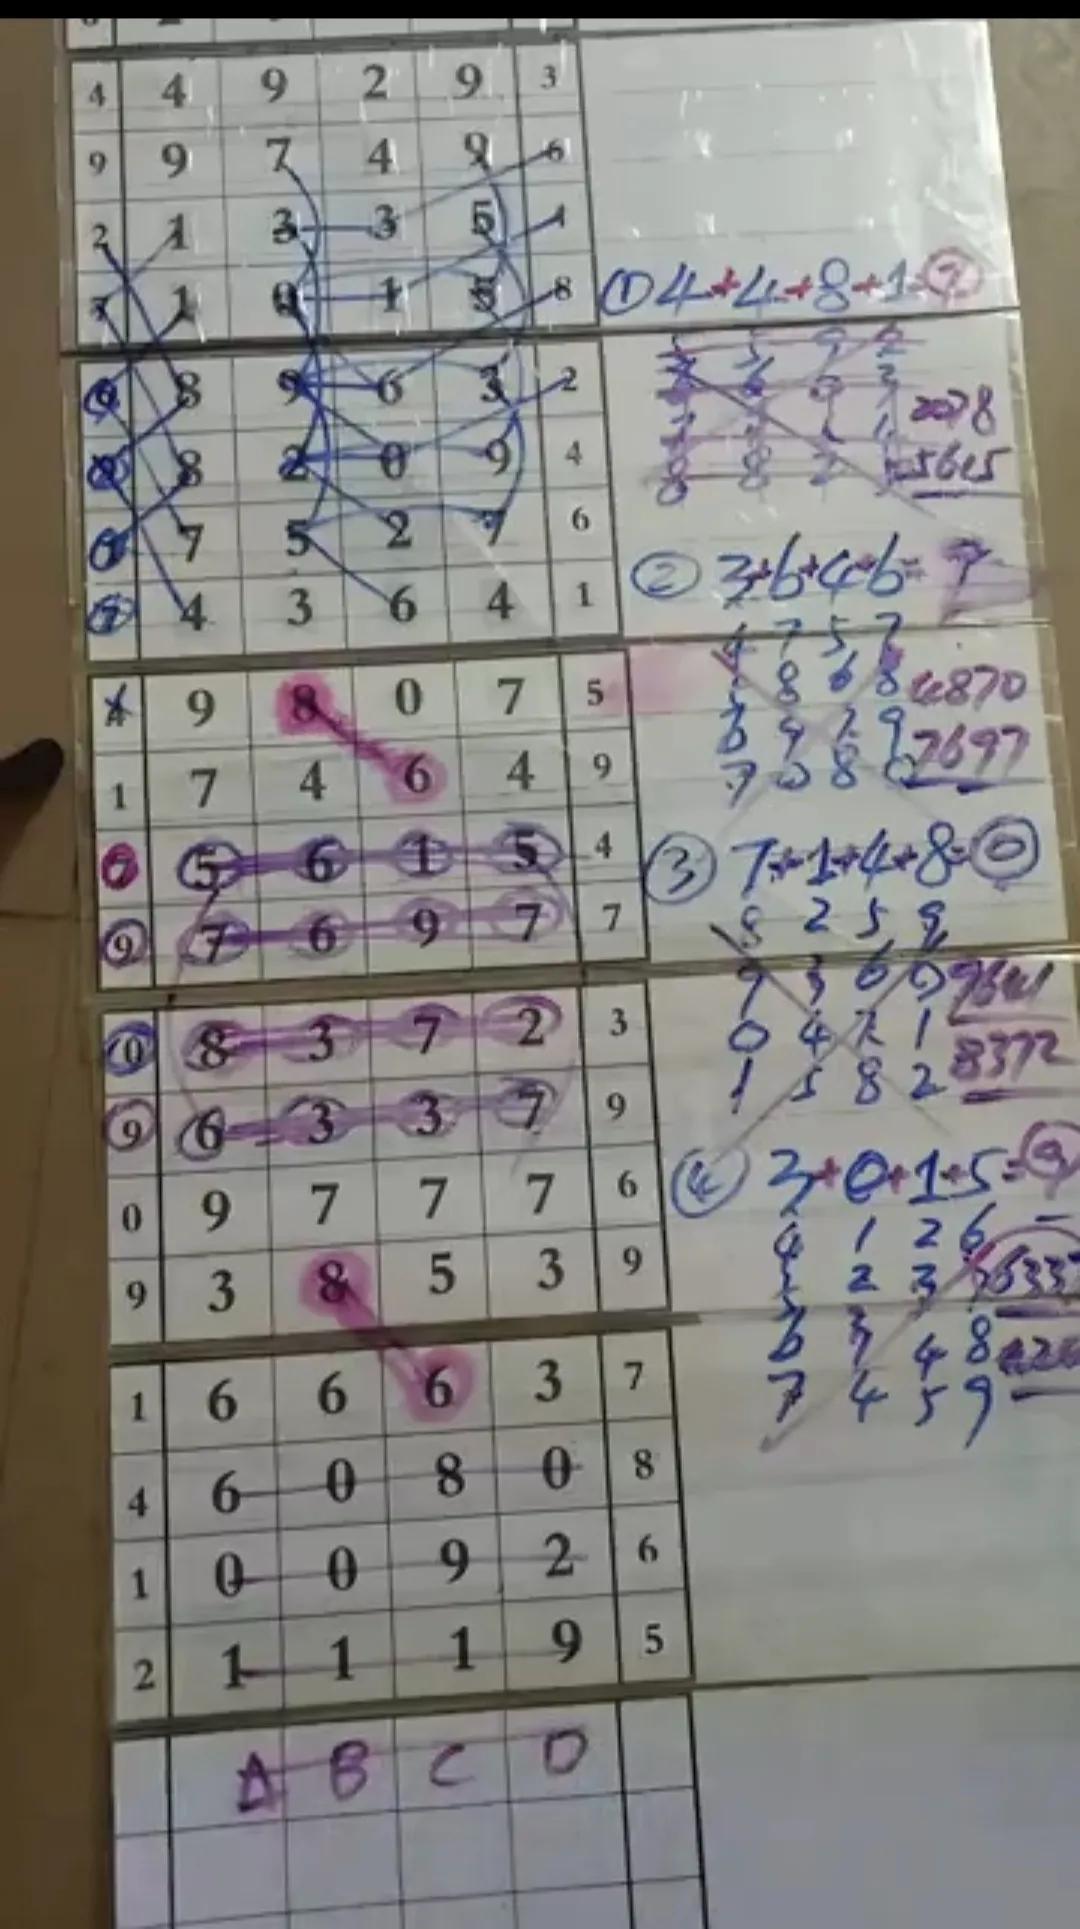 4 4 9 2 9 3
9 9 7 4 9 6
2 1 3 3 5 1
7 1 9 1 5 8
① 4+4+8+1=7
8 9 6 3 2
8 2 0 9 4
7 5 2 7 6
4 3 6 4 1
5615
② 3+6+4+6=9
4 7 5 7
8 6 8
6 9 7 9
7 0 8 0
4870
7697
9 8 0 7 5
1 7 4 6 4 9
5 6 1 5 4
9 7 6 9 7 7
③ 7+1+4+8=0
8 2 5 9
9 3 6 0
0 4 7 1
1 5 8 2
8372
0 8 3 7 2 3
9 6 3 3 7 9
0 9 7 7 7 6
9 3 8 5 3 9
④ 3+0+1+5=9
4 1 2 6
5 2 3
6 3 4 8
7 4 5 9
6337
1 6 6 6 3 7
4 6 0 8 0 8
1 0 0 9 2 6
2 1 1 1 9 5
A B C D